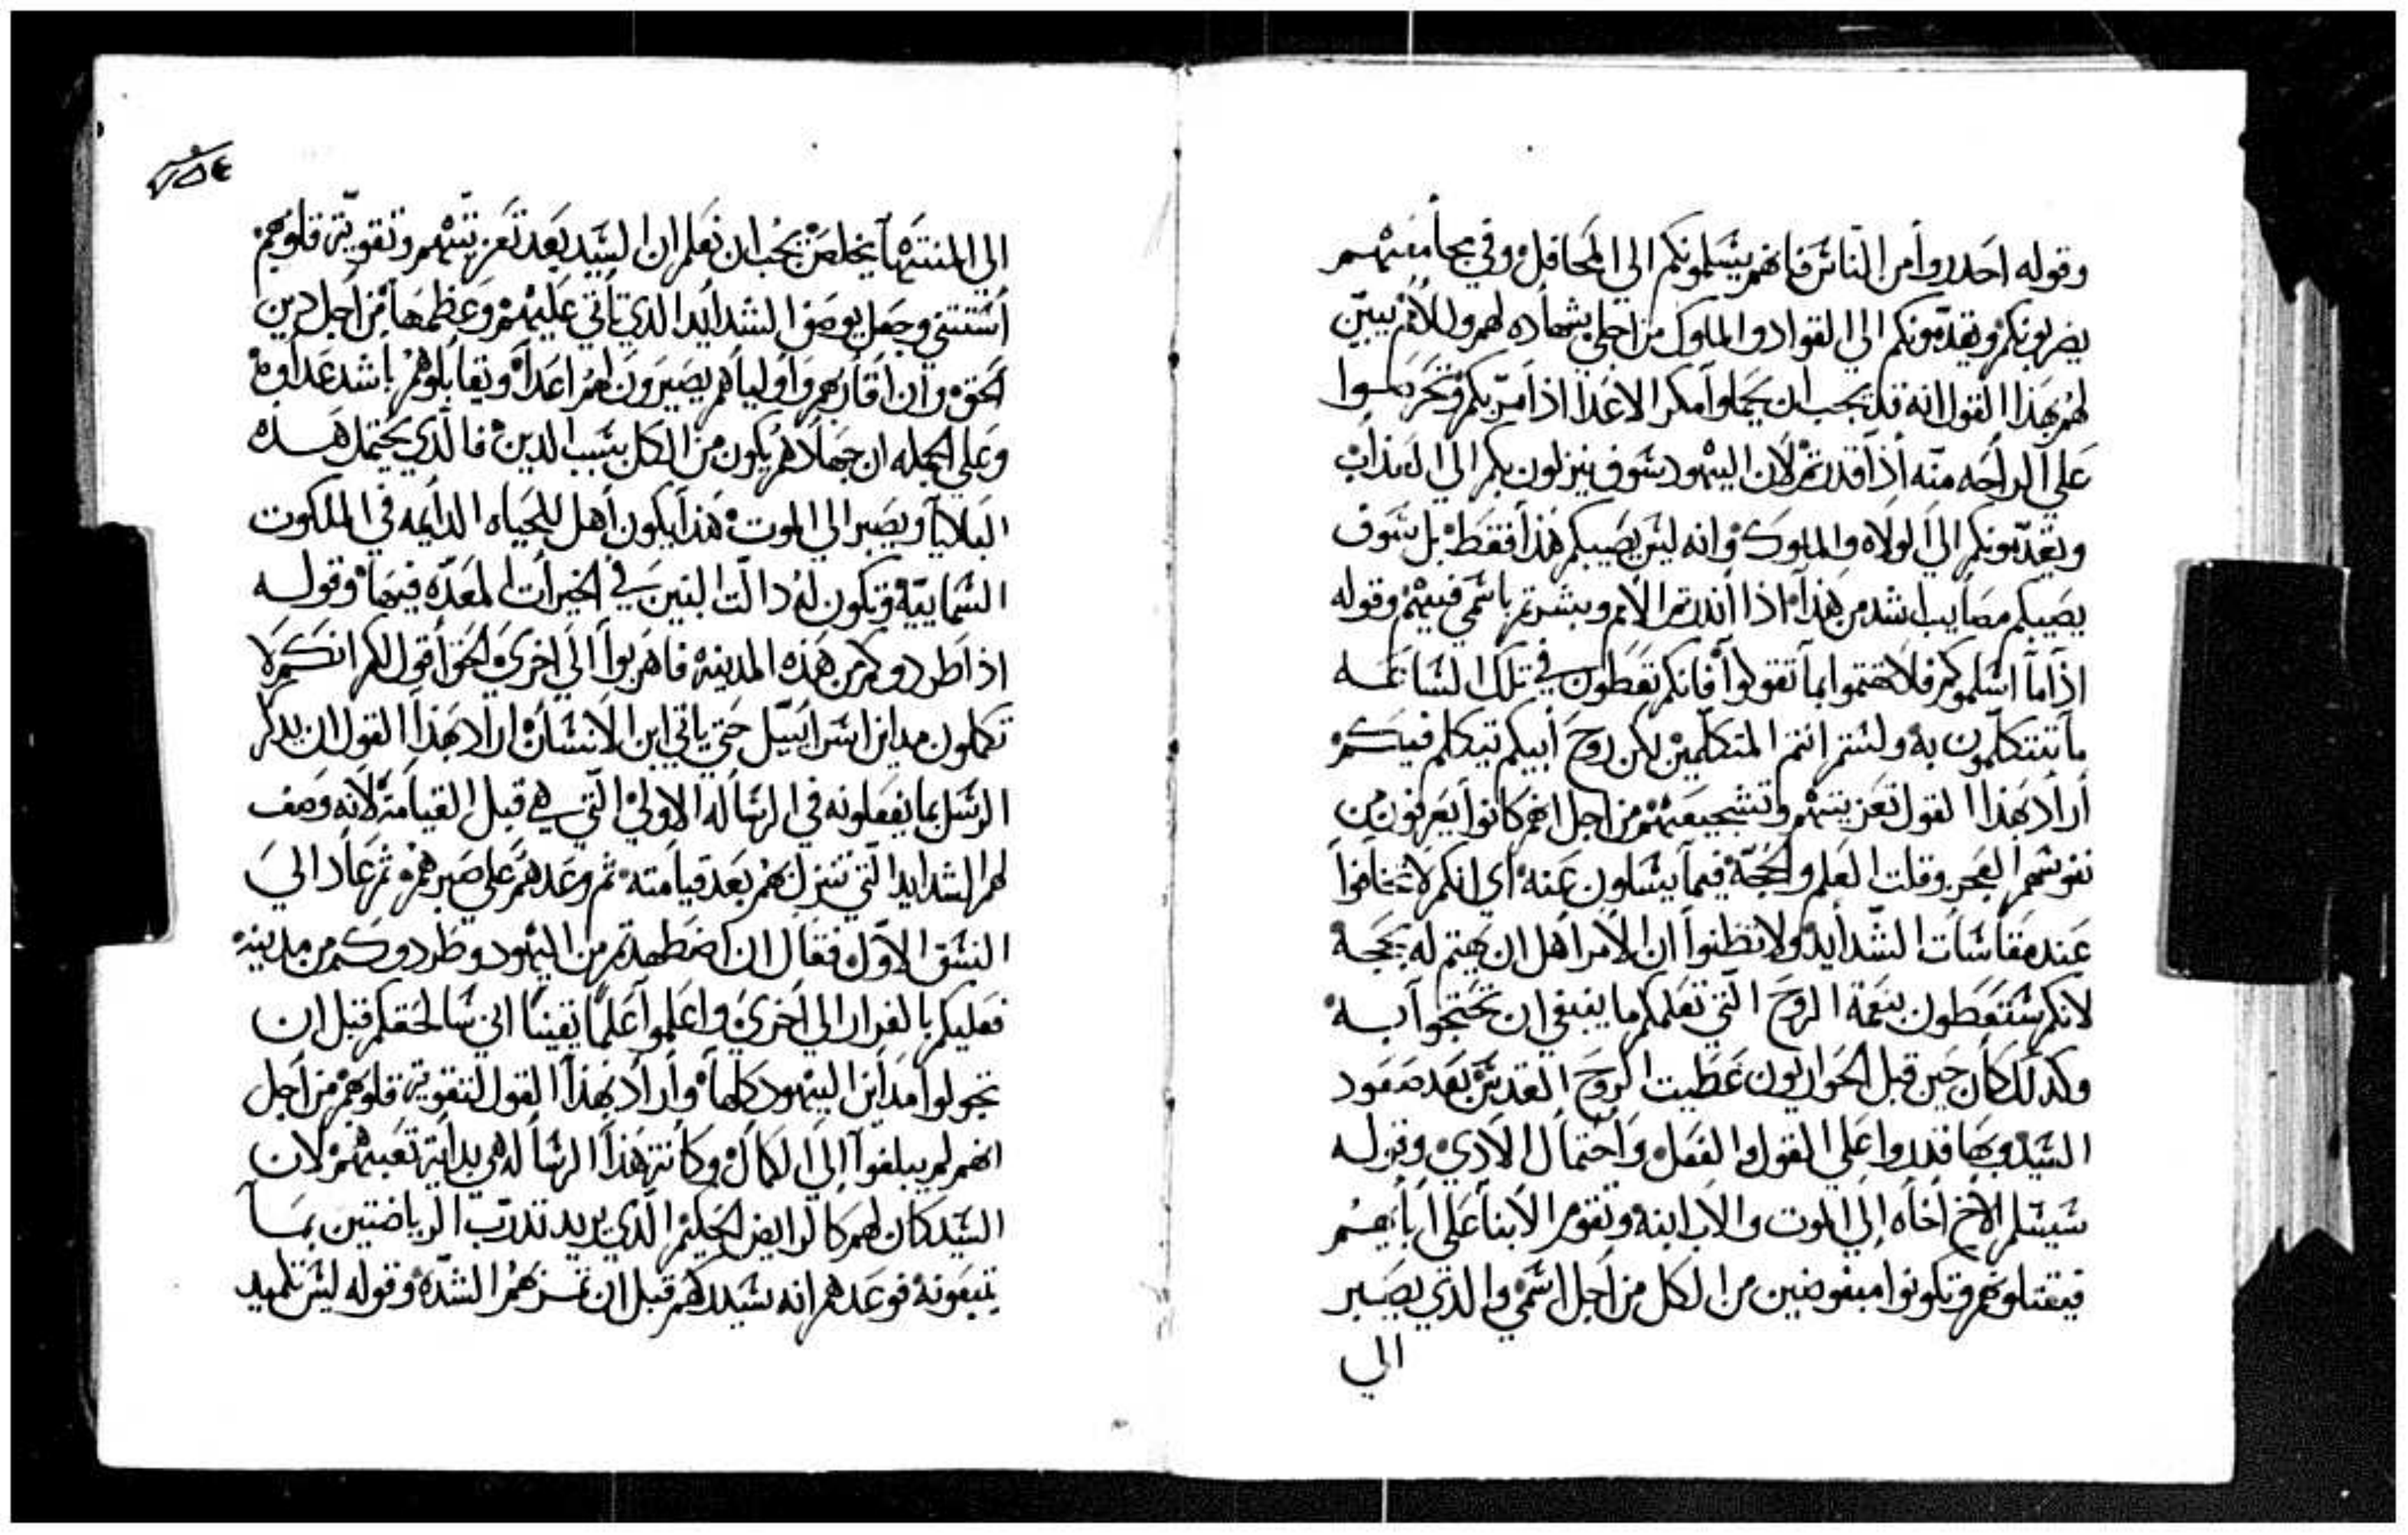 وقوله احدروا من الناس فانهم يسلمونكم الي المحافل وفي مجامعهم
يضربونكم ويقدمونكم الي القواد والملوك من اجلي شهاده لهم وللامم يبين
لهم بهذا القول انه قد يجب ان يحملوا مكر الاعدا اذا مر بكم
علي الراحه منه اذا قدرتم لان اليهود سوف ينزلون بكم الي العذاب
ويقدمونكم الي الولاه والملوك وانه ليس يصيبكم هذا فقط بل سوف
يصيبكم مصايب اشد من هذا اذا اندرتم الامم وبشرتم باسمي فيهم وقوله
اذا ما اسلموكم فلا تهتموا بما تقولوا فانكم تعطون في تلك الساعه
ما تتكلمون به ولستم انتم المتكلمين لكن روح ابيكم تتكلم فيكم
اراد بهذا القول تعزيتهم وتشجيعهم من اجل انهم كانوا يعرفون من
نفوسهم العجز وقلت العلم والحجة فيما يسالون عنه اي انكم لا تخافوا
عند مقاسات الشدايد ولا تظنوا ان الامر اهل ان يهتم له بحجه
لانكم ستعطون بنعمة الروح التي تعلمكم ما ينبغي ان تحتجوا به
وكدلك كان حين قبل الحواريون عطيت الروح القدس بعد صعود
السيد وبها قدروا علي القول والفعل واحتمال الادي وقوله
سيسلم الاخ اخاه الي الموت والاب ابنه وتقوم الابنا علي ابايهم
فيقتلوهم وتكونوا مبغوضين من الكل من اجل اسمي والذي يصبر
الي
الي المنتها يخلص يجب ان نعلم ان السيد بعد تعزيتهم وتقوية قلوبهم
استتني وجعل يوصف الشدايد الذي تاتي عليهم وعظمها من اجل دين
الحق وان اقاربهم واولياهم يصيرون لهم اعدا ويقابلوهم باشد عداوه
وعلي الجمله ان جهادهم يكون من الكل بسبب الدين فالذي يحتمل هذه
البلايا ويصبر الي الموت هذا يكون اهل للحياه الدايمه في الملكوت
السماييه وتكون له دالت البنين في الخيرات المعده فيها وقوله
اذا طردوكم من هذه المدينه فاهربوا الي اخري والحق اقول لكم انكم لا
تكملون مداين اسراييل حتي ياتي ابن الانسان اراد بهذا القول ان يدكر
الرسل بما يفعلونه في الرساله الاولي التي هي قبل القيامة لانه وصف
لهم الشدايد التي تنزل بهم بعد قيامته ثم وعدهم علي صبرهم ثم عاد الي
النسق الاول فقال ان اضطهدتم من اليهود وطردوكم من مدينه
فعليكم بالفرار الي اخري واعلموا علما يقينا اني سالحقكم قبل ان
تجولوا مداين اليهود كلها واراد بهذا القول لتقوية قلوبهم من اجل
انهم لم يبلغوا الي الكمال وكانت هذا الرساله هي بداية تعبهم لان
السيد كان لهم كالرايض الحكيم الذي يريد تدرب الرياضتين بما
يتبعونه فوعدهم انه سيدركهم قبل ان الشده وقوله ليس تلميد